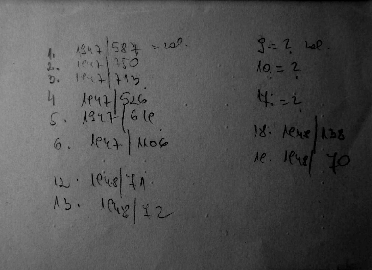 1. 1947/587 = cop.
2. 1947/250
3. 1947/713
4 1947/526
5. 1947/618
6. 1947/1106
12. 1948/71.
13. 1948/72
9 = ? cop.
10 = ?
17. = ?
18. 1948/138
19. 1948/70